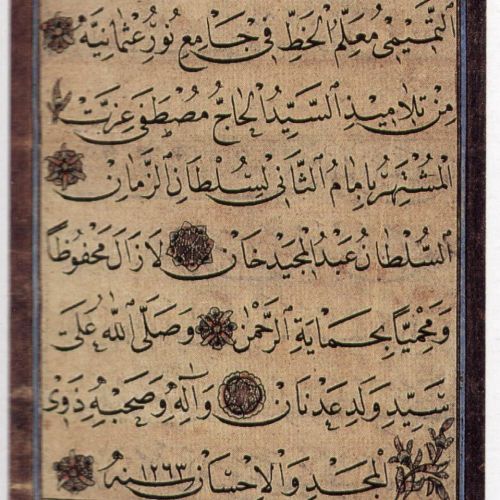 التَّمِيمِي مُعَلِّمُ الخَطِّ فِي جَامِعِ نُورِ عُثْمَانِيَّه
مِنْ تَلَامِيذِ السَّيِّدُ الحَاجُّ مُصْطَفَى عِزَّتْ
المُشْتَهِرُ بِإِمَامُ الثَّانِي لِسُلْطَانِ الزَّمَانِ
السُّلْطَانُ عَبْدُ المَجِيدِ خَانْ لَا زَالَ مَحْفُوظًا
وَمَحْمِيًّا بِحِمَايَةِ الرَّحْمٰنِ وَصَلَّى اللهُ عَلَى
سَيِّدِ وَلَدِ عَدْنَانْ وَآلِهِ وَصَحْبِهِ ذَوِي
المَجْدِ وَالإِحْسَانِ سنه ١٢٦٣